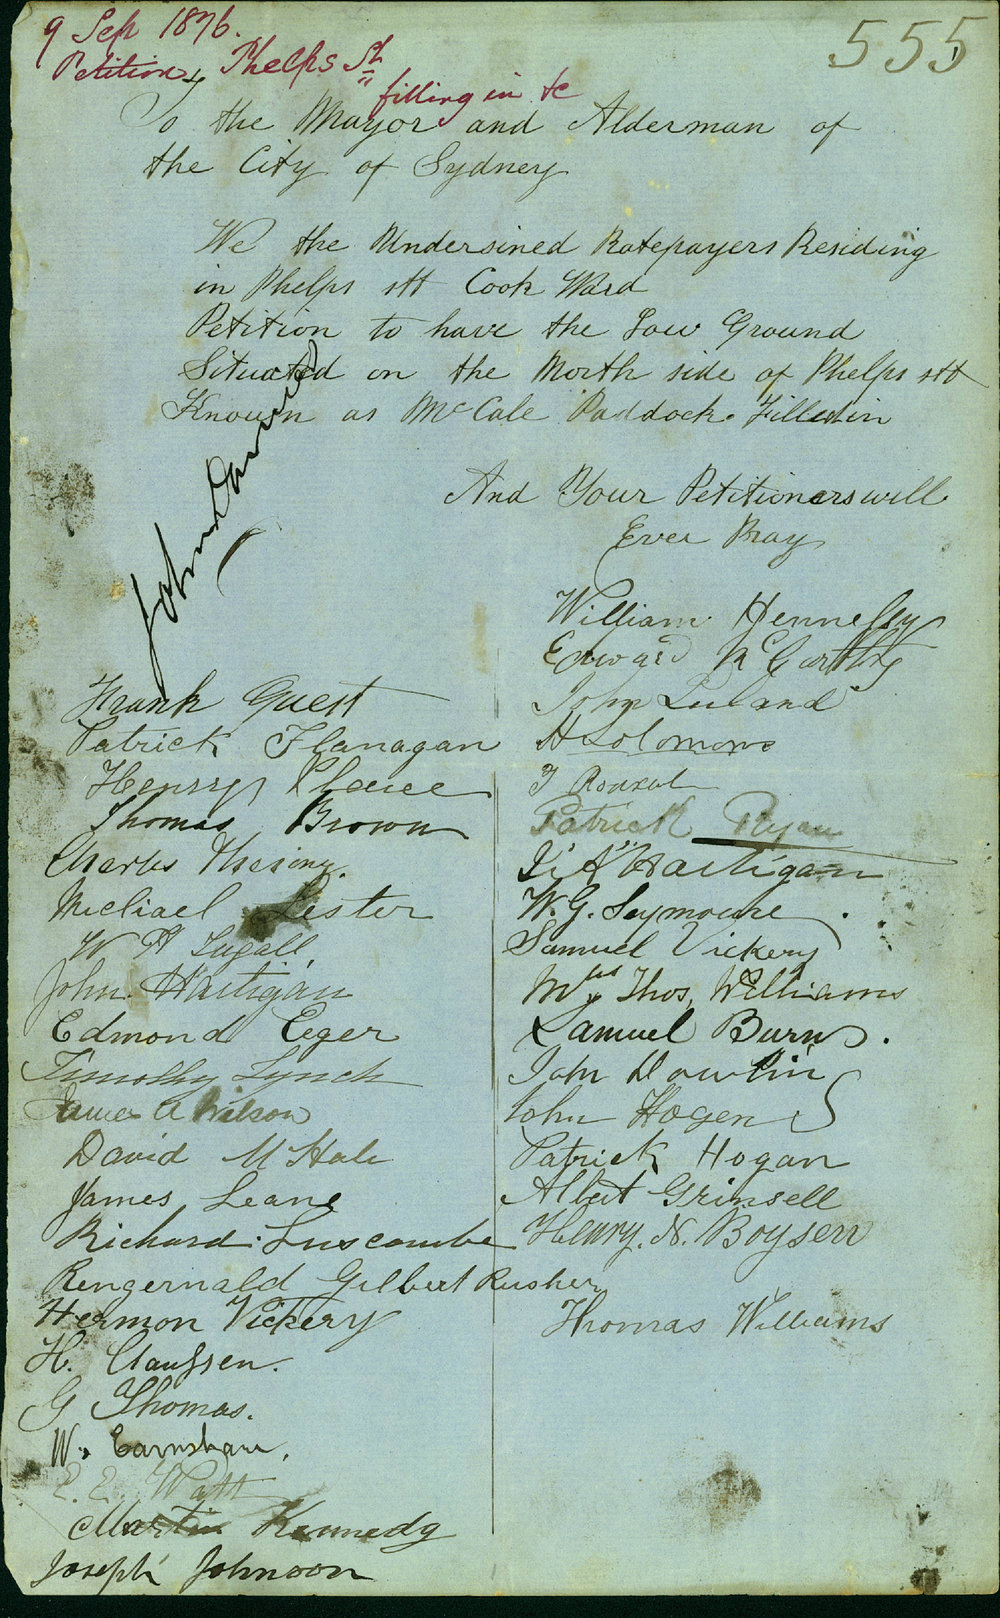 9 Sep 1876.
555
Petition Phelps St
filling in &c
To the Mayor and Alderman of
the City of Sydney
We the Undersined Ratepayers Residing
in Phelps stt Cook Ward
Petition to have the Low Ground
Situated on the North side of Phelps stt
Known as McCale Paddock Filled in
And Your Petitioners will
Ever Pray
John
William Hennessy
Edward McCarthy
John
H Solomons
T
Patrick Ryan
Hartigan
W. G. Seymoure
Samuel Vickery
Mrs Thos. Williams
Samuel Burns.
John Dowlin
John Hogen
Patrick Hogan
Albert Grinsell
Henry. N. Boysen
Thomas Williams
Frank Guest
Patrick Flanagan
Henry
Thomas Brown
Charles
Michael Lester
W H
John Hartigan
Edmond Eger
Timothy Lynch
James A Wilson
David McHale
James Leane
Richard. Luscombe
Rengernald Gilbert Rusher
Hermon Vickery
H. Claussen.
G Thomas.
W. Earnshaw.
E. E. Watt
Martin Kennedy
Joseph Johnson